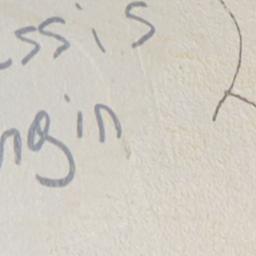 ssis
ngin